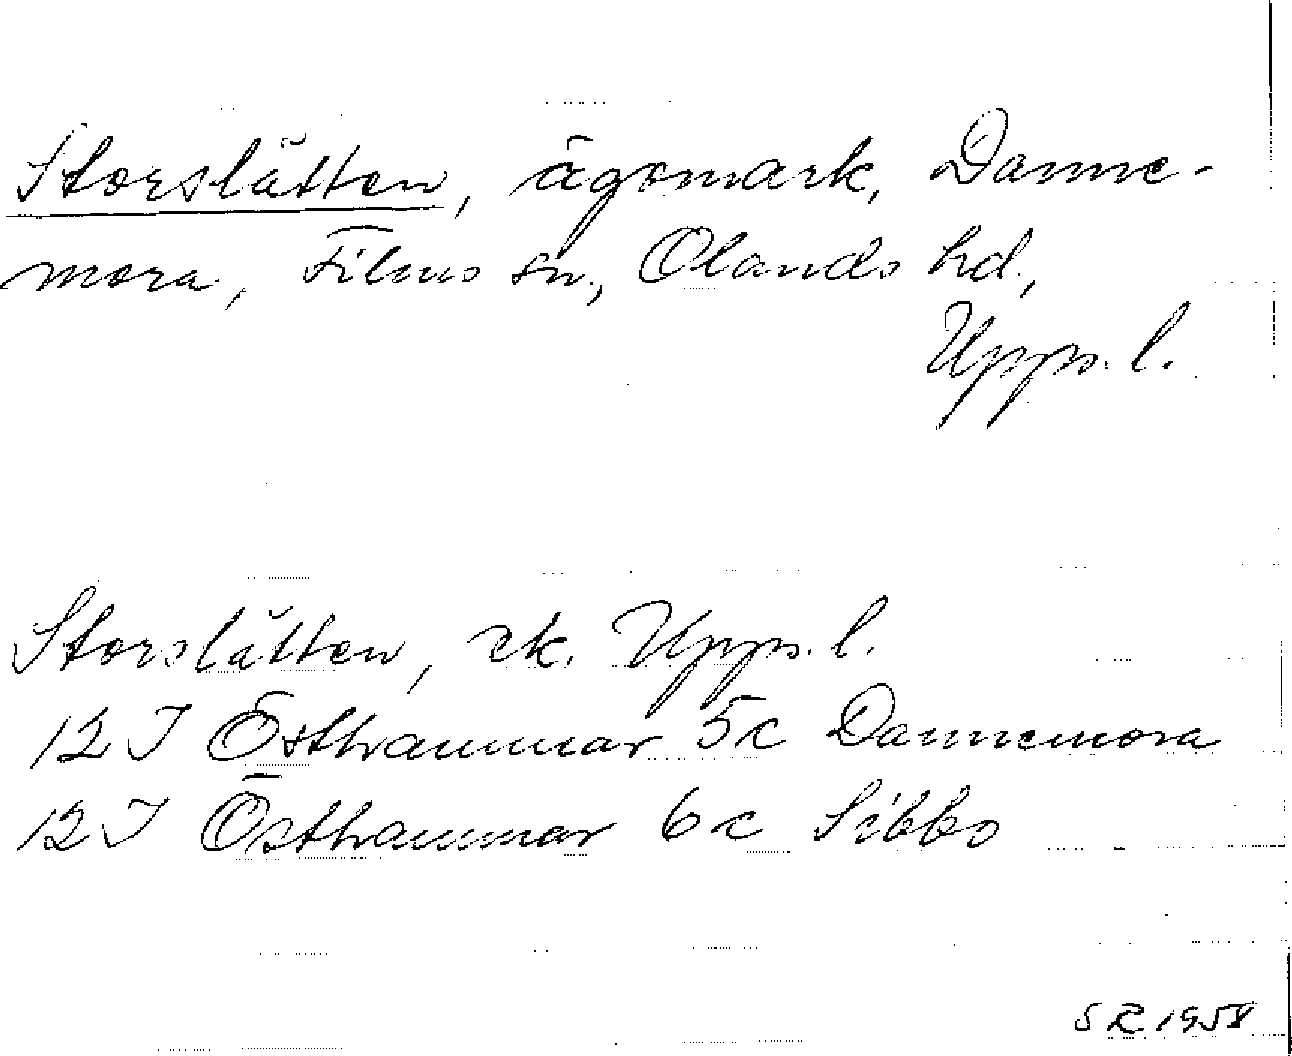 Storslätten, ägomark, Danne-
mora, Films sn., Olands hd.,
Upps. l.
Storslätten, ek. Upps. l.
12 I Östhammar 5c Dannemora
12 I Östhammar 6c Sibbo
SR 195